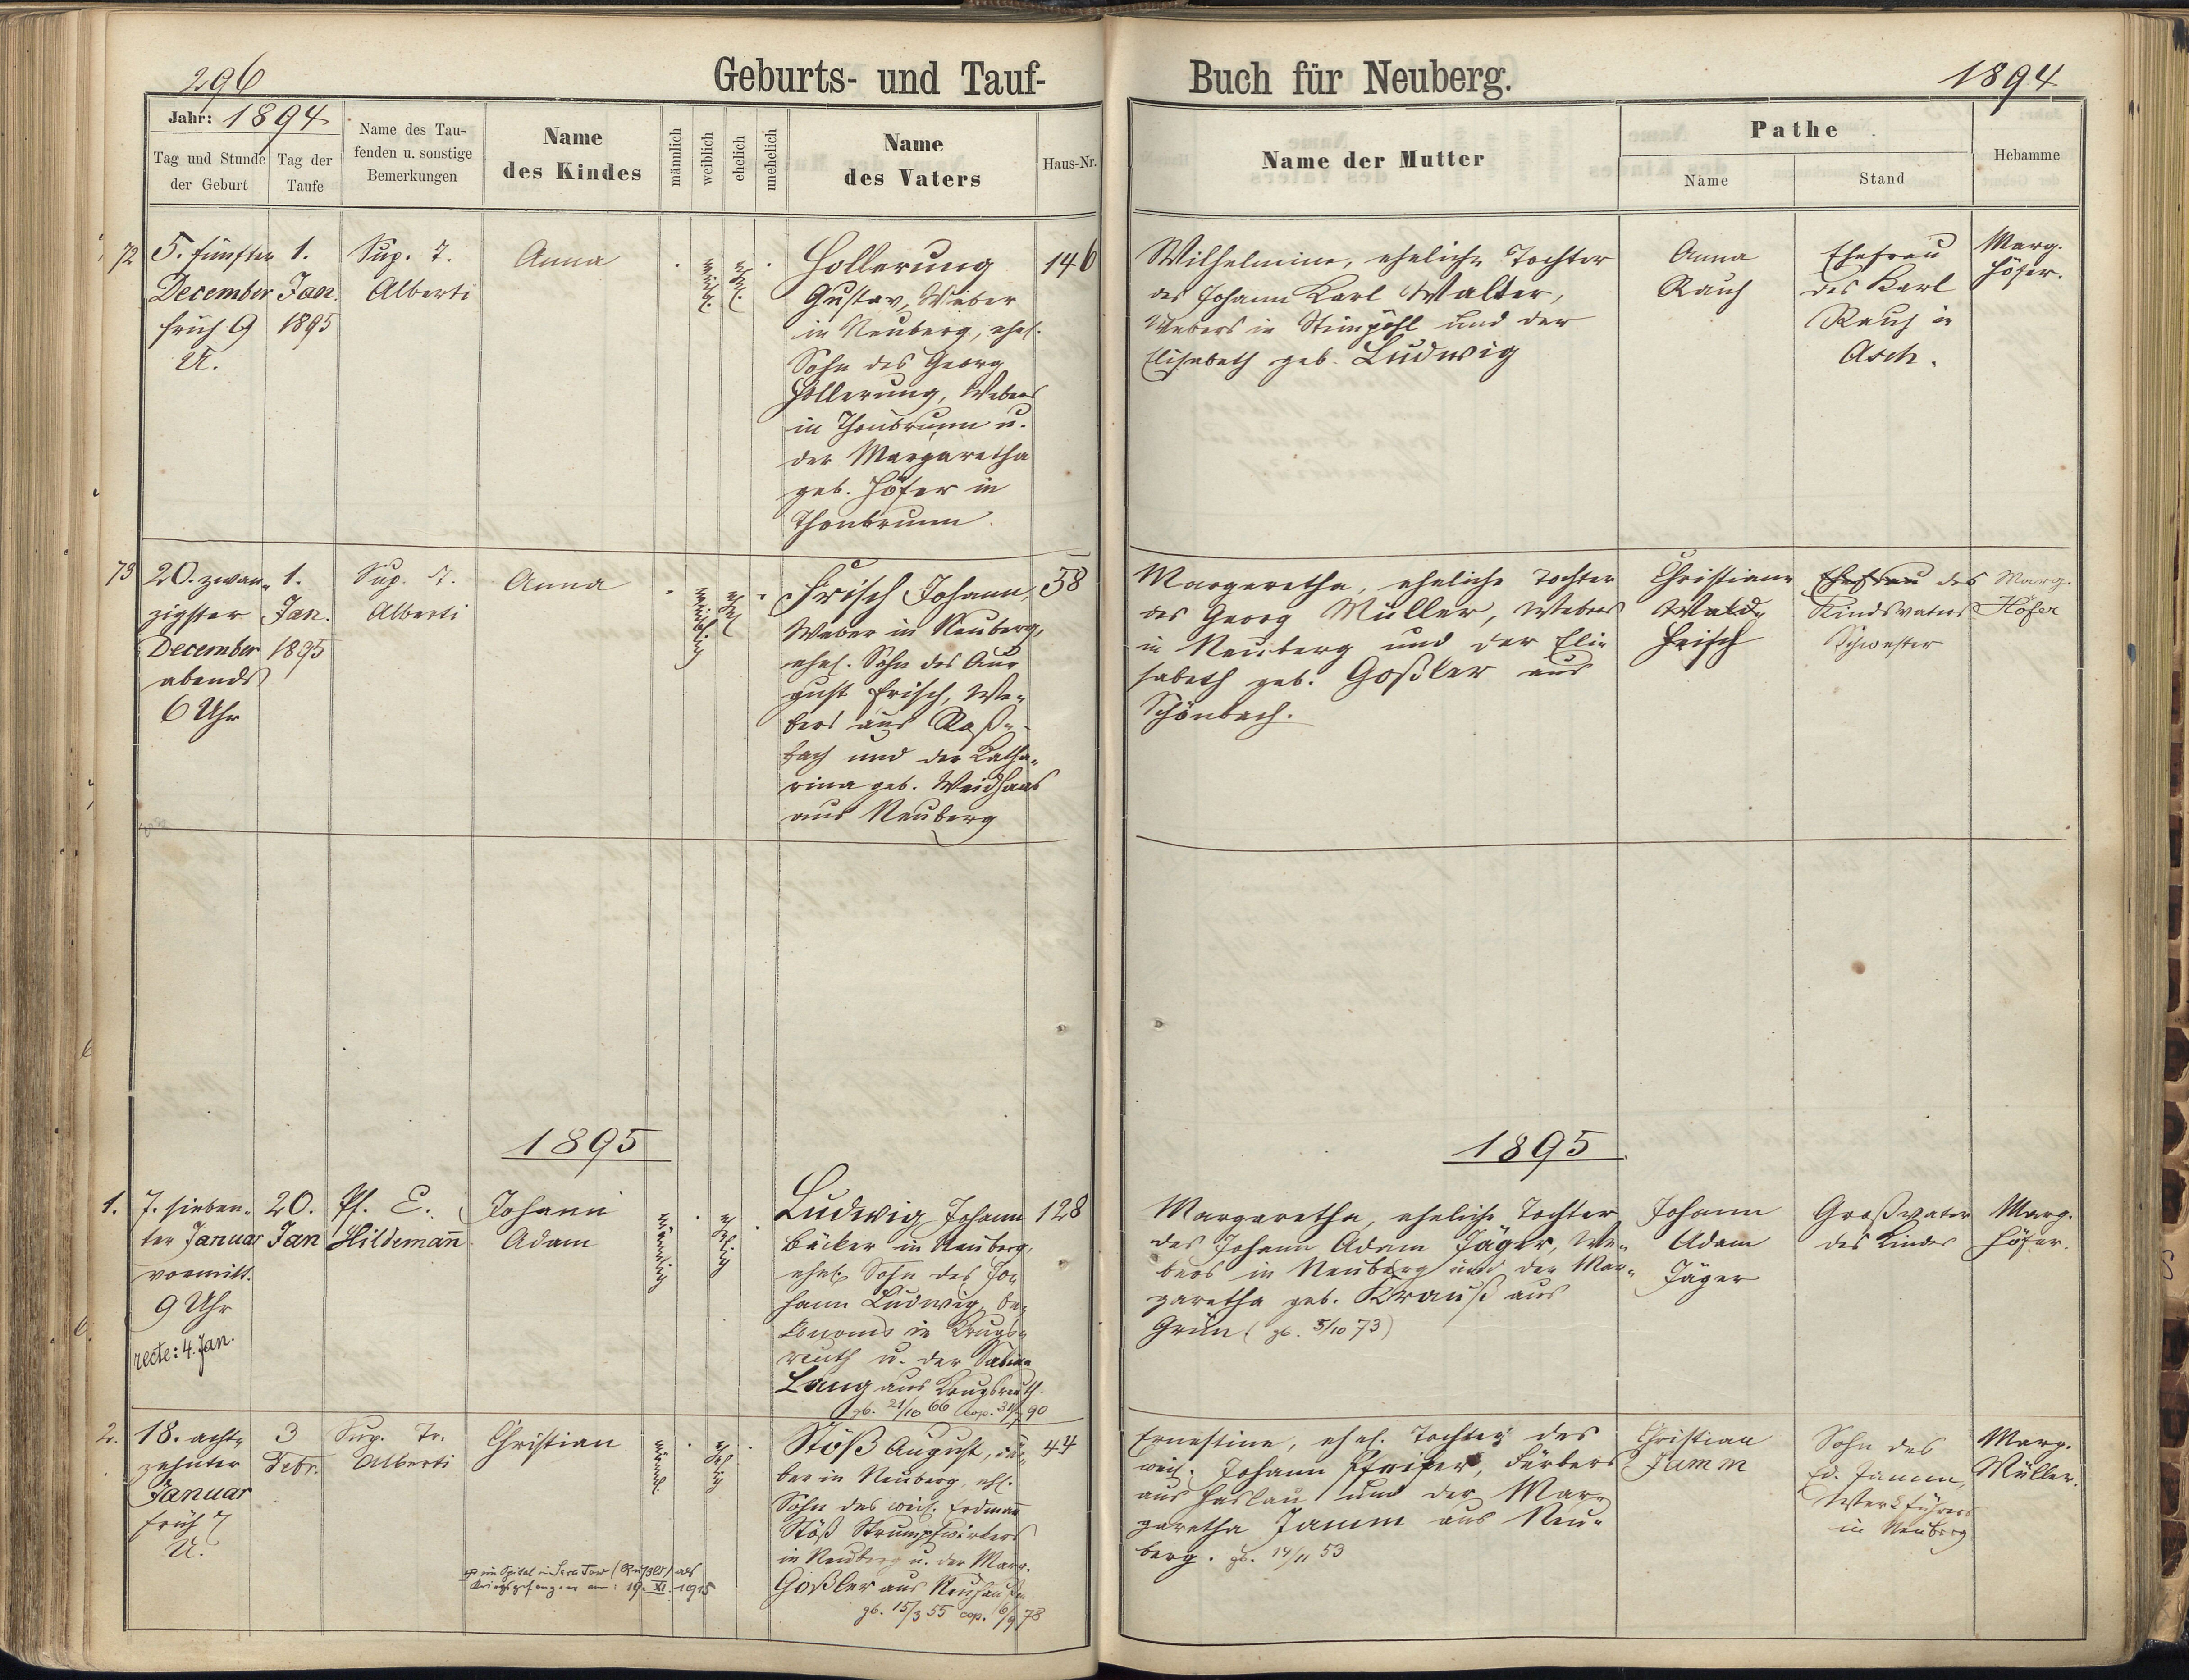 296
Geburts- und Tauf-
Buch für Neuberg.
1894
Jahr: 1894
Tag und Stunde der Geburt
Tag der Taufe
Name des Tau-
fenden u. sonstige
Bemerkungen
Name
des Kindes
männlich
weiblich
ehelich
unehelich
Name
des Vaters
Haus-Nr.
Name der Mutter
Pathe
Name
Stand
Hebamme
72
5. fünfter
December
früh 9
U.
1.
Jan.
1895
Sup. T.
Alberti
Anna
weibl.
ehl.
Hollerung
Gustav, Weber
in Neuberg, ehel.
Sohn des Georg
Hollerung, Webers
in Thonbrunn u.
der Margaretha
geb. Höfer in
Thonbrunn
146
Wilhelmine, eheliche Tochter
des Johann Karl Walter,
Webers in Steinpöhl und der
Elisabeth geb. Ludwig
Anna
Rauh
Ehefrau
des Karl
Rauh in
Asch.
Marg.
Höfer.
73
20. zwan-
zigster
December
abends
6 Uhr
1.
Jan.
1895
Sup. T.
Alberti
Anna
weiblich
ehel
Frisch Johann,
Weber in Neuberg,
ehel. Sohn des Au-
gust Frisch, We-
bers aus Roß-
bach und der Katha-
rina geb. Weidhaas
aus Neuberg
58
Margaretha, eheliche Tochter
des Georg Müller, Webers
in Neuberg und der Eli-
sabeth geb. Goßler aus
Schönbach.
Christiane
Frisch
Ehefrau des
Kindsvaters
Schwester
Marg.
Höfer
1895
1895
1.
7. sieben-
ter Januar
vormitt.
9 Uhr
recte: 4. Jan.
20.
Jan
Pf. E.
Hildemann
Johann
Adam
männlich
ehelich
Ludwig Johann
Bäcker in Neuberg,
ehel. Sohn des Jo-
hann Ludwig, Oe-
konoms in Krugs-
reuth u. der Sabine
Lang aus Krugsreuth.
gb. 21/10 66 cop. 31/7 90
128
Margaretha, eheliche Tochter
des Johann Adam Jäger, We-
bers in Neuberg und der Mar-
garetha geb. Krauß aus
Grün (gb. 5/10 73)
Johann
Adam
Jäger
Großvater
des Kindes
Marg.
Höfer.
2.
18. acht-
zehnter
Januar
früh 7
U.
3
Febr.
Sup. Tr.
Alberti
Christian
männl.
ehelich
Stöß August, Fär-
ber in Neuberg, ehl.
Sohn des weil. Erdmann
Stöß Strumpfwirkers
in Neuberg u. der Marg.
Goßler aus Neuhausen
gb. 15/3 55 cop. 6/9 78
44
Ernestine, ehel. Tochter des
weil. Johann Pfeifer, Färbers
aus Haslau und der Mar-
garetha Jamm aus Neu-
berg. gb. 14/11 53
Christian
Jamm
Sohn des
Ed. Jamm,
Werkführers
in Neuberg
Marg.
Müller.
im Spital in (Rußld) als
Kriegsgefangener am: 19. XI. 1915